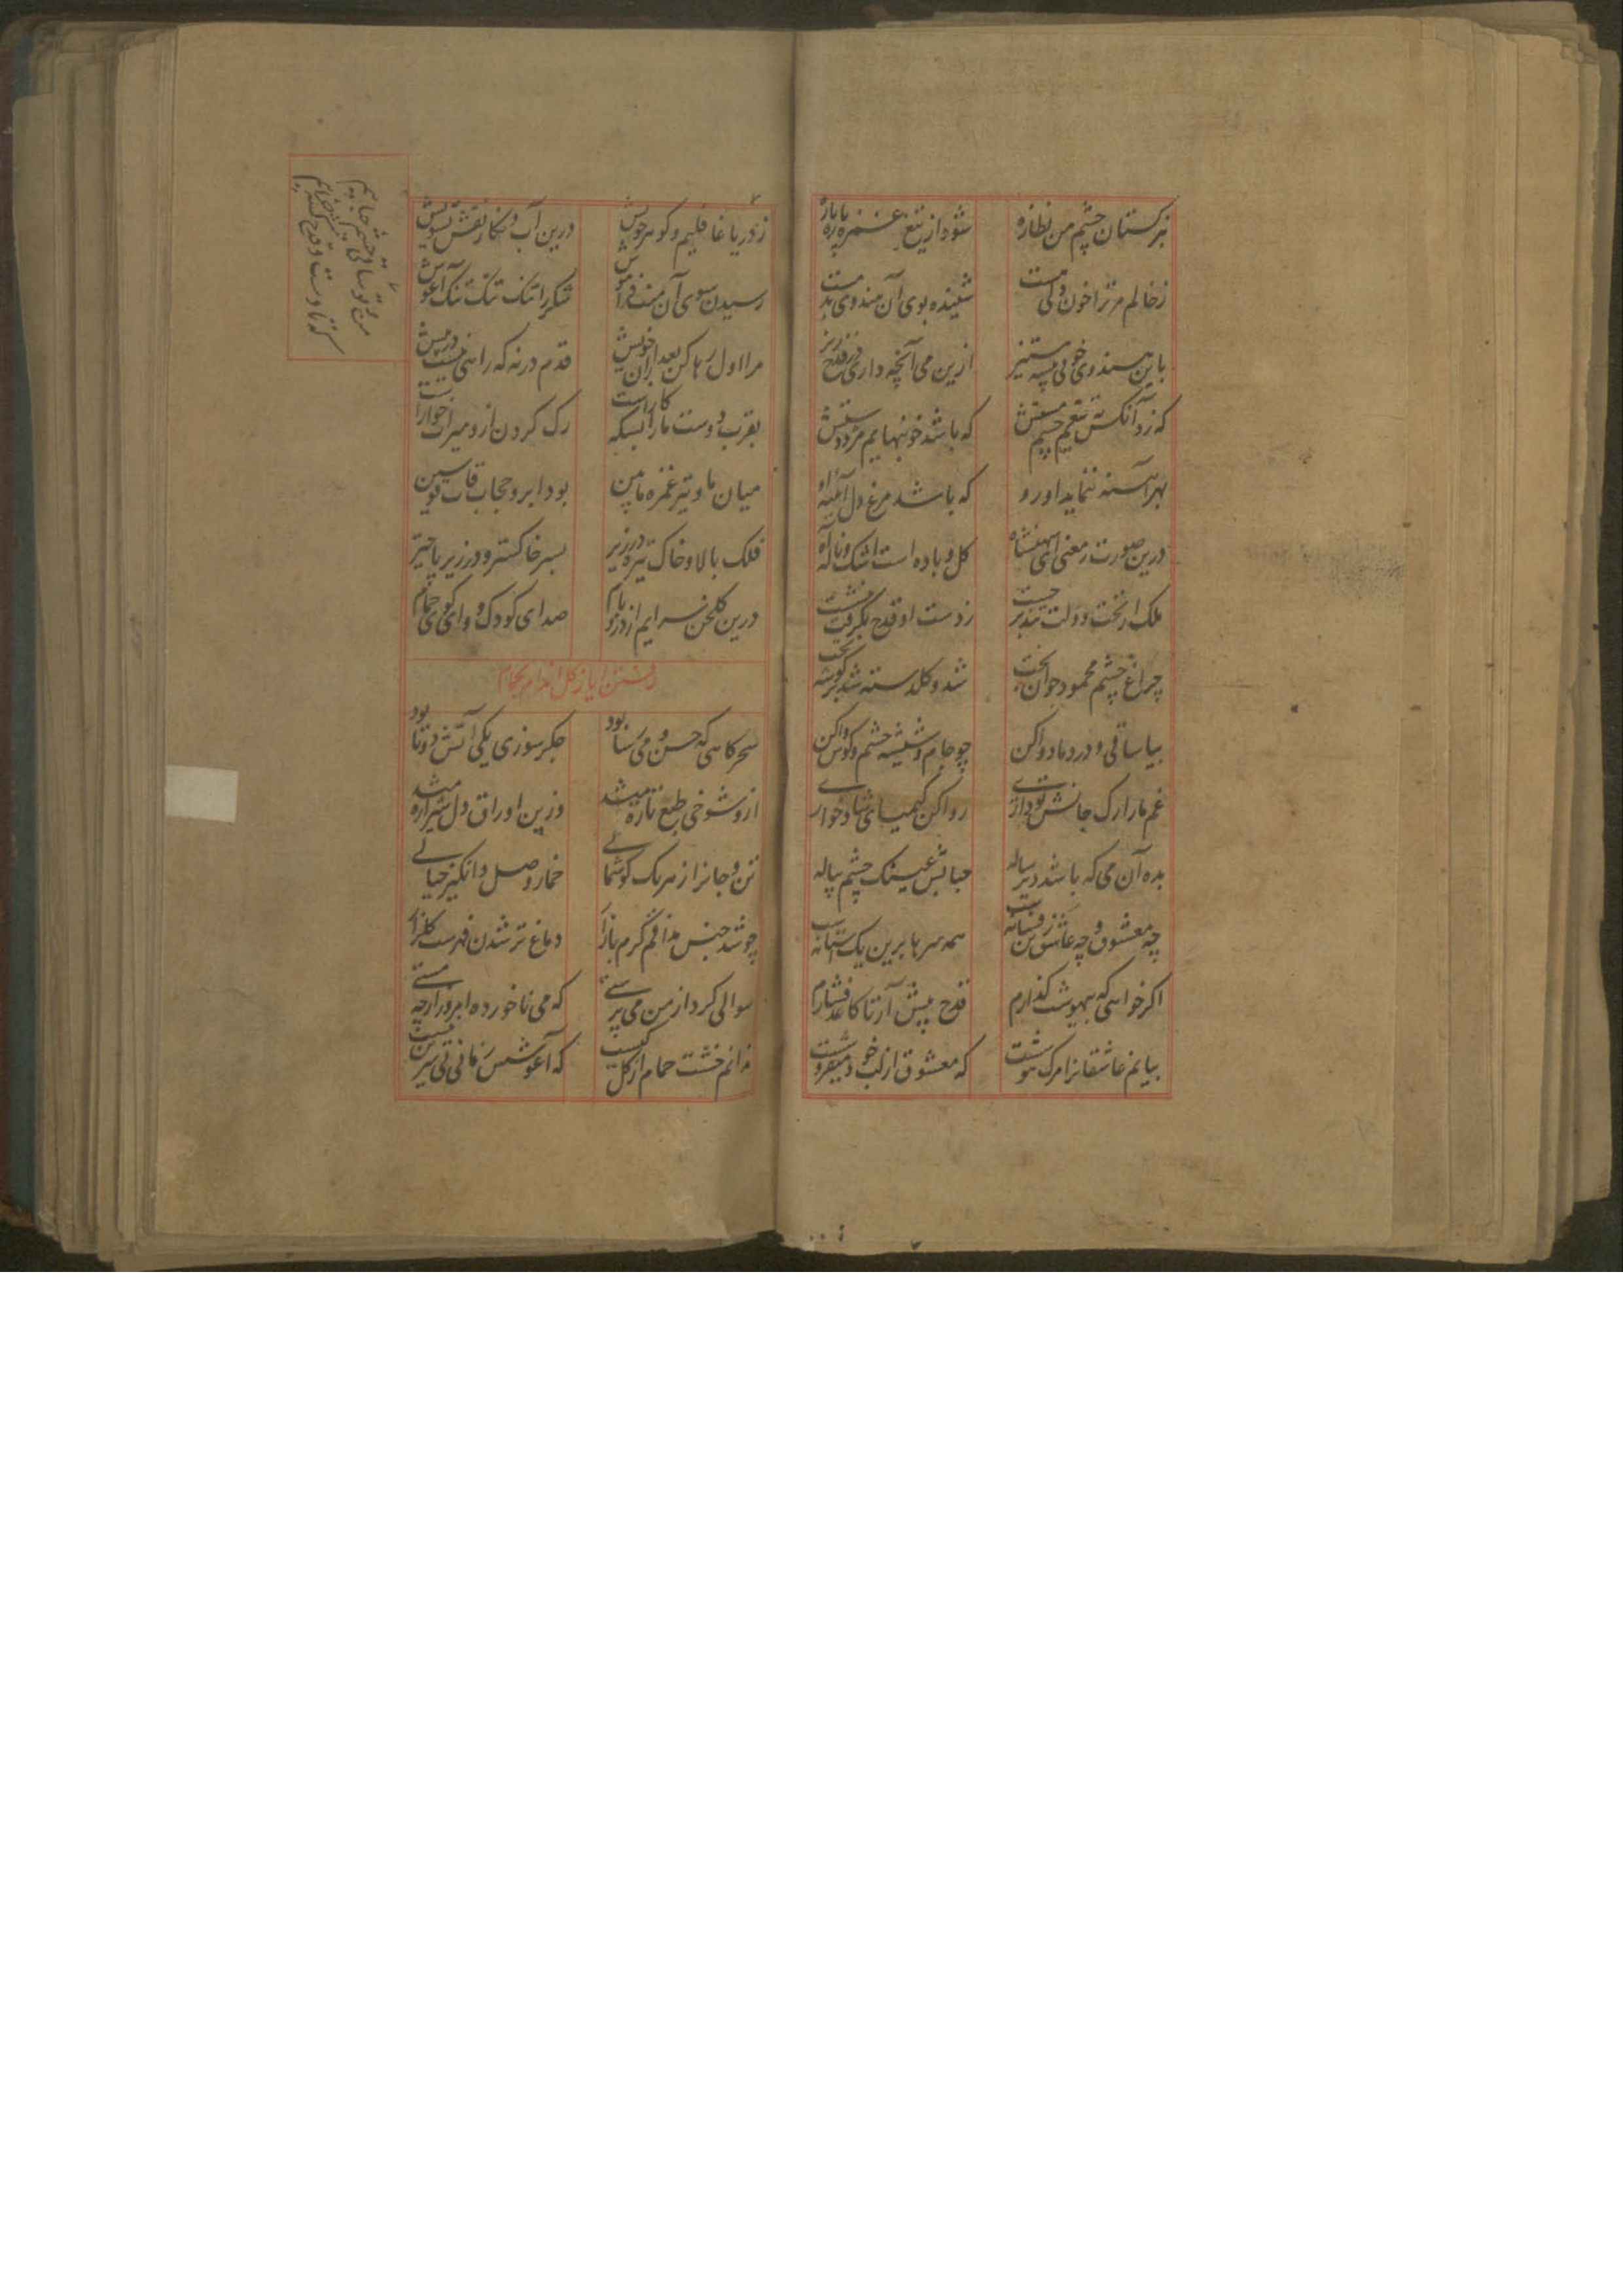 بترکستان چشم من نظاره شود از تیغ غمزه پاره پاره
زخالم مر ترا خون دلی هست شنیده بوی آن هندوی بد مست
باین هندوی خونی ستیز ازین می آنچه داری در قدح ریز
که زد آنکس تیغم چشم مستش که باشد خونبهایم مزد دستش
بهر آئینه ننماید او رو که باشد مرغ دل آئینه او
درین صورت ز معنی ای شهنشاه گل و باده است اشک و ناله و آه
ملک از تخت دولت جست ز دست او قدح بگرفت
چراغ چشم محمود جوان بخت شد و گلدسته شد بر گوشه تخت
بیا ساقی و درد ما دوا کن چو جام و شیشه چشم و گوش وا کن
غم ما را رک جانش تو داری روا کن کیمیای شادخواری
بده آن می که باشد دیر ساله حبابش عینک چشم پیاله
چه معشوق و چه عاشق زن فسانه همه سرها برین یک آستانه
اگر خواهی که بیهوشت گذارم قدح پیش آر تا کاغذ فشارم
بیانم عاشقانرا مرگ هوشست که معشوق از لب خود میفروشست
ز دریا غافلیم و گوهر خویش درین آب و نگار نقش تشویش
رسیدن سوی آن مست فراموش شکر را تنگ تنگ تنگ آغوش
مرا اول رها کن بعد ازان خویش قدم در نه که راهی نیست در پیش
بقرب دوست ما را بسکه کار است رک کردن ازو میراخوار است
میان ما و تیر غمزه مابین بود ابرو حجاب قاب قوسین
فلک بالا و خاک تیره در زیر بسر خاکستر و در زیر پا
درین گلخن سرایم از در و بام صدای کودک و وای کوی حمام
رفتن ایاز گل اندام بحمام
سحرگاهی که حسن و می رسا بود جگرسوزی یکی آتش دو تا بود
ازو شوخی طبع تازه میشد وزین اوراق دل شیرازه میشد
تن و جانرا ز هر یک گوشمالی خمار وصل و انگیز خیالی
چو شد جنس مذاقم گرم بازار دماغ تر شدن فهرست گلزار
سوالی کرد از من می پرستی که می ناخورده امروز از چه مستی
ندانم خشت حمام از گل کیست که آغوشش زمانی بی سرین نیست
من و تو ساقی
که تا دست و قدح